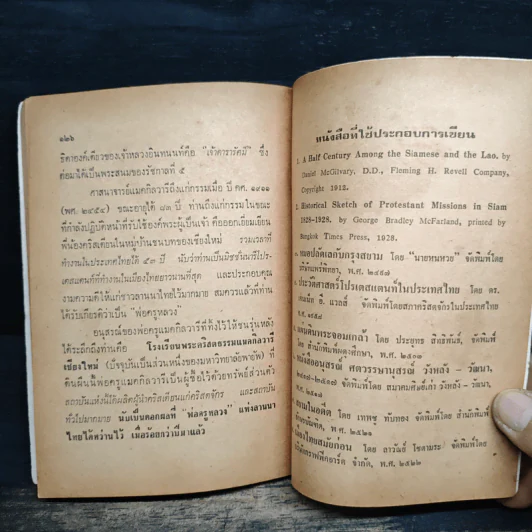 ๑๒๖
ธิดาองค์เดียวของเจ้าหลวงอินทนนท์คือ "เจ้าดารารัศมี" ซึ่ง
ต่อมาได้เป็นพระสนมของรัชกาลที่ ๕
ศาสนาจารย์แมคกิลวารีถึงแก่กรรมเมื่อ ปี คศ. ๑๙๑๑
(พศ. ๒๔๕๔) ขณะอายุได้ ๘๓ ปี ท่านถึงแก่กรรมในขณะ
ที่กำลังปฏิบัติหน้าที่รับใช้องค์พระผู้เป็นเจ้า คือออกเยี่ยมเยียน
พี่น้องคริสเตียนในหมู่บ้านชนบทของเชียงใหม่ รวมเวลาที่
ทำงานในประเทศไทยได้ ๕๓ ปี นับว่าท่านเป็นมิชชันนารีโปร-
เตสแตนท์ที่ทำงานในเมืองไทยยาวนานที่สุด และประกอบคุณ
งามความดีให้แก่ชาวลานนาไทยไว้มากมาย สมควรแล้วที่ท่าน
ได้รับเกียรติว่าเป็น "พ่อครูหลวง"
อนุสรณ์ของพ่อครูแมคกิลวารีที่ทิ้งไว้ให้ชนรุ่นหลัง
ได้ระลึกถึงท่านคือ โรงเรียนพระคริสตธรรมแมคกิลวารี
เชียงใหม่ (ปัจจุบันเป็นส่วนหนึ่งของมหาวิทยาลัยพายัพ) ที่
ดินผืนนี้พ่อครูแมคกิลวารีเป็นผู้ซื้อไว้ด้วยทรัพย์ส่วนตัว
สถาบันแห่งนี้ได้ผลิตผู้นำคริสเตียนแก่คริสตจักร และสถาบัน
ทั่วไปมากมาย นั่นเป็นดอกผลที่ "พ่อครูหลวง" แห่งลานนา
ไทยได้หว่านไว้ เมื่อร้อยกว่าปีมาแล้ว
หนังสือที่ใช้ประกอบการเขียน
1. A Half Century Among the Siamese and the Lao. by
Daniel McGilvary, D.D., Fleming H. Revell Company,
Copyright 1912.
2. Historical Sketch of Protestant Missions in Siam
1828-1928. by George Bradley McFarland, printed by
Bangkok Times Press, 1928.
หมอปลัดเลกับกรุงสยาม โดย "นายหนหวย" จัดพิมพ์โดย
พ.ศ. ๒๔๗๗
ประวัติศาสตร์โปรเตสแตนท์ในประเทศไทย โดย ดร.
เคนเน็ท อี. แวลส์ จัดพิมพ์โดยสภาคริสตจักรในประเทศไทย
แผ่นดินพระจอมเกล้า โดย ประยุทธ สิทธิพันธ์, จัดพิมพ์
โดย สำนักพิมพ์
หนังสืออนุสรณ์ ศตวรรษานุสรณ์ วังหลัง - วัฒนา,
จัดพิมพ์โดย สมาคมศิษย์เก่า วังหลัง - วัฒนา,
สยามในอดีต โดย เทพชู ทับทอง จัดพิมพ์โดย สำนักพิมพ์
พ.ศ. ๒๕๒๑
เมืองไทยสมัยก่อน โดย ลาวัณย์ โชตามระ จัดพิมพ์โดย
จำกัด, พ.ศ. ๒๕๒๒